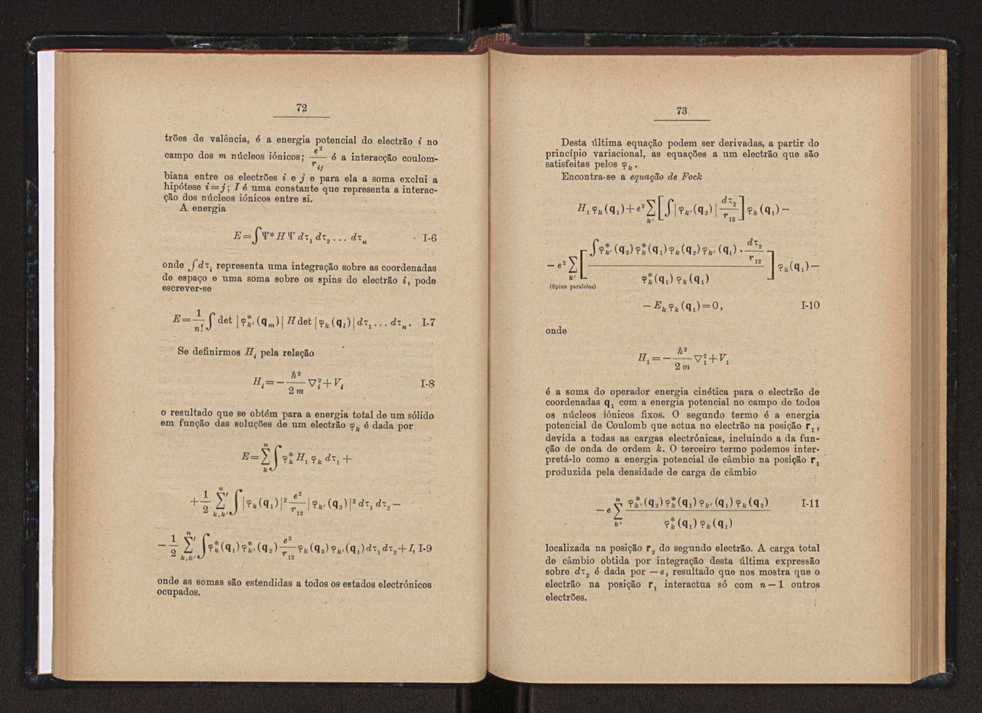 72
trões de valência, é a energia potencial do electrão i no
campo dos m núcleos iónicos; e²/r_ij é a interacção coulom-
biana entre os electrões i e j e para ela a soma exclui a
hipótese i=j; I é uma constante que representa a interac-
ção dos núcleos iónicos entre si.
A energia
E=∫Ψ* H Ψ dτ₁ dτ₂ ... dτₙ I-6
onde ∫dτ₁ representa uma integração sobre as coordenadas
de espaço e uma soma sobre os spins do electrão i, pode
escrever-se
E = 1/n! ∫ det |φ*ₖ'(qₘ)| H det |φₖ(q_l)| dτ₁ ... dτₙ. I-7
Se definirmos Hᵢ pela relação
Hᵢ = − ħ²/2m ∇²ᵢ + Vᵢ I-8
o resultado que se obtém para a energia total de um sólido
em função das soluções de um electrão φₖ é dada por
E = Σₖⁿ ∫ φ*ₖ H₁ φₖ dτ₁ +
+ 1/2 Σ'ⁿₖ,ₖ' ∫ |φₖ(q₁)|² e²/r₁₂ |φₖ'(q₂)|² dτ₁ dτ₂ −
− 1/2 Σ'ⁿₖ,ₖ' ∫ φ*ₖ(q₁) φ*ₖ'(q₂) e²/r₁₂ φₖ(q₂) φₖ'(q₁) dτ₁ dτ₂ + I, I-9
onde as somas são estendidas a todos os estados electrónicos
ocupados.
73
Desta última equação podem ser derivadas, a partir do
princípio variacional, as equações a um electrão que são
satisfeitas pelos φₖ.
Encontra-se a equação de Fock
H₁ φₖ(q₁) + e² Σₖ' [∫ |φₖ'(q₂)|² dτ₂/r₁₂] φₖ(q₁) −
− e² Σₖ' [∫ φ*ₖ'(q₂) φ*ₖ(q₁) φₖ(q₂) φₖ'(q₁) . dτ₂/r₁₂ / φ*ₖ(q₁) φₖ(q₁)] φₖ(q₁) −
(Spins paralelos)
− Eₖ φₖ(q₁) = 0, I-10
onde
H₁ = − ħ²/2m ∇²₁ + V₁
é a soma do operador energia cinética para o electrão de
coordenadas q₁ com a energia potencial no campo de todos
os núcleos iónicos fixos. O segundo termo é a energia
potencial de Coulomb que actua no electrão na posição r₁,
devida a todas as cargas electrónicas, incluindo a da fun-
ção de onda de ordem k. O terceiro termo podemos inter-
pretá-lo como a energia potencial de câmbio na posição r₁
produzida pela densidade de carga de câmbio
− e Σₖ'ⁿ φ*ₖ'(q₂) φ*ₖ(q₁) φₖ'(q₁) φₖ(q₂) / φ*ₖ(q₁) φₖ(q₁) I-11
localizada na posição r₂ do segundo electrão. A carga total
de câmbio obtida por integração desta última expressão
sobre dτ₂ é dada por −e, resultado que nos mostra que o
electrão na posição r₁ interactua só com n−1 outros
electrões.